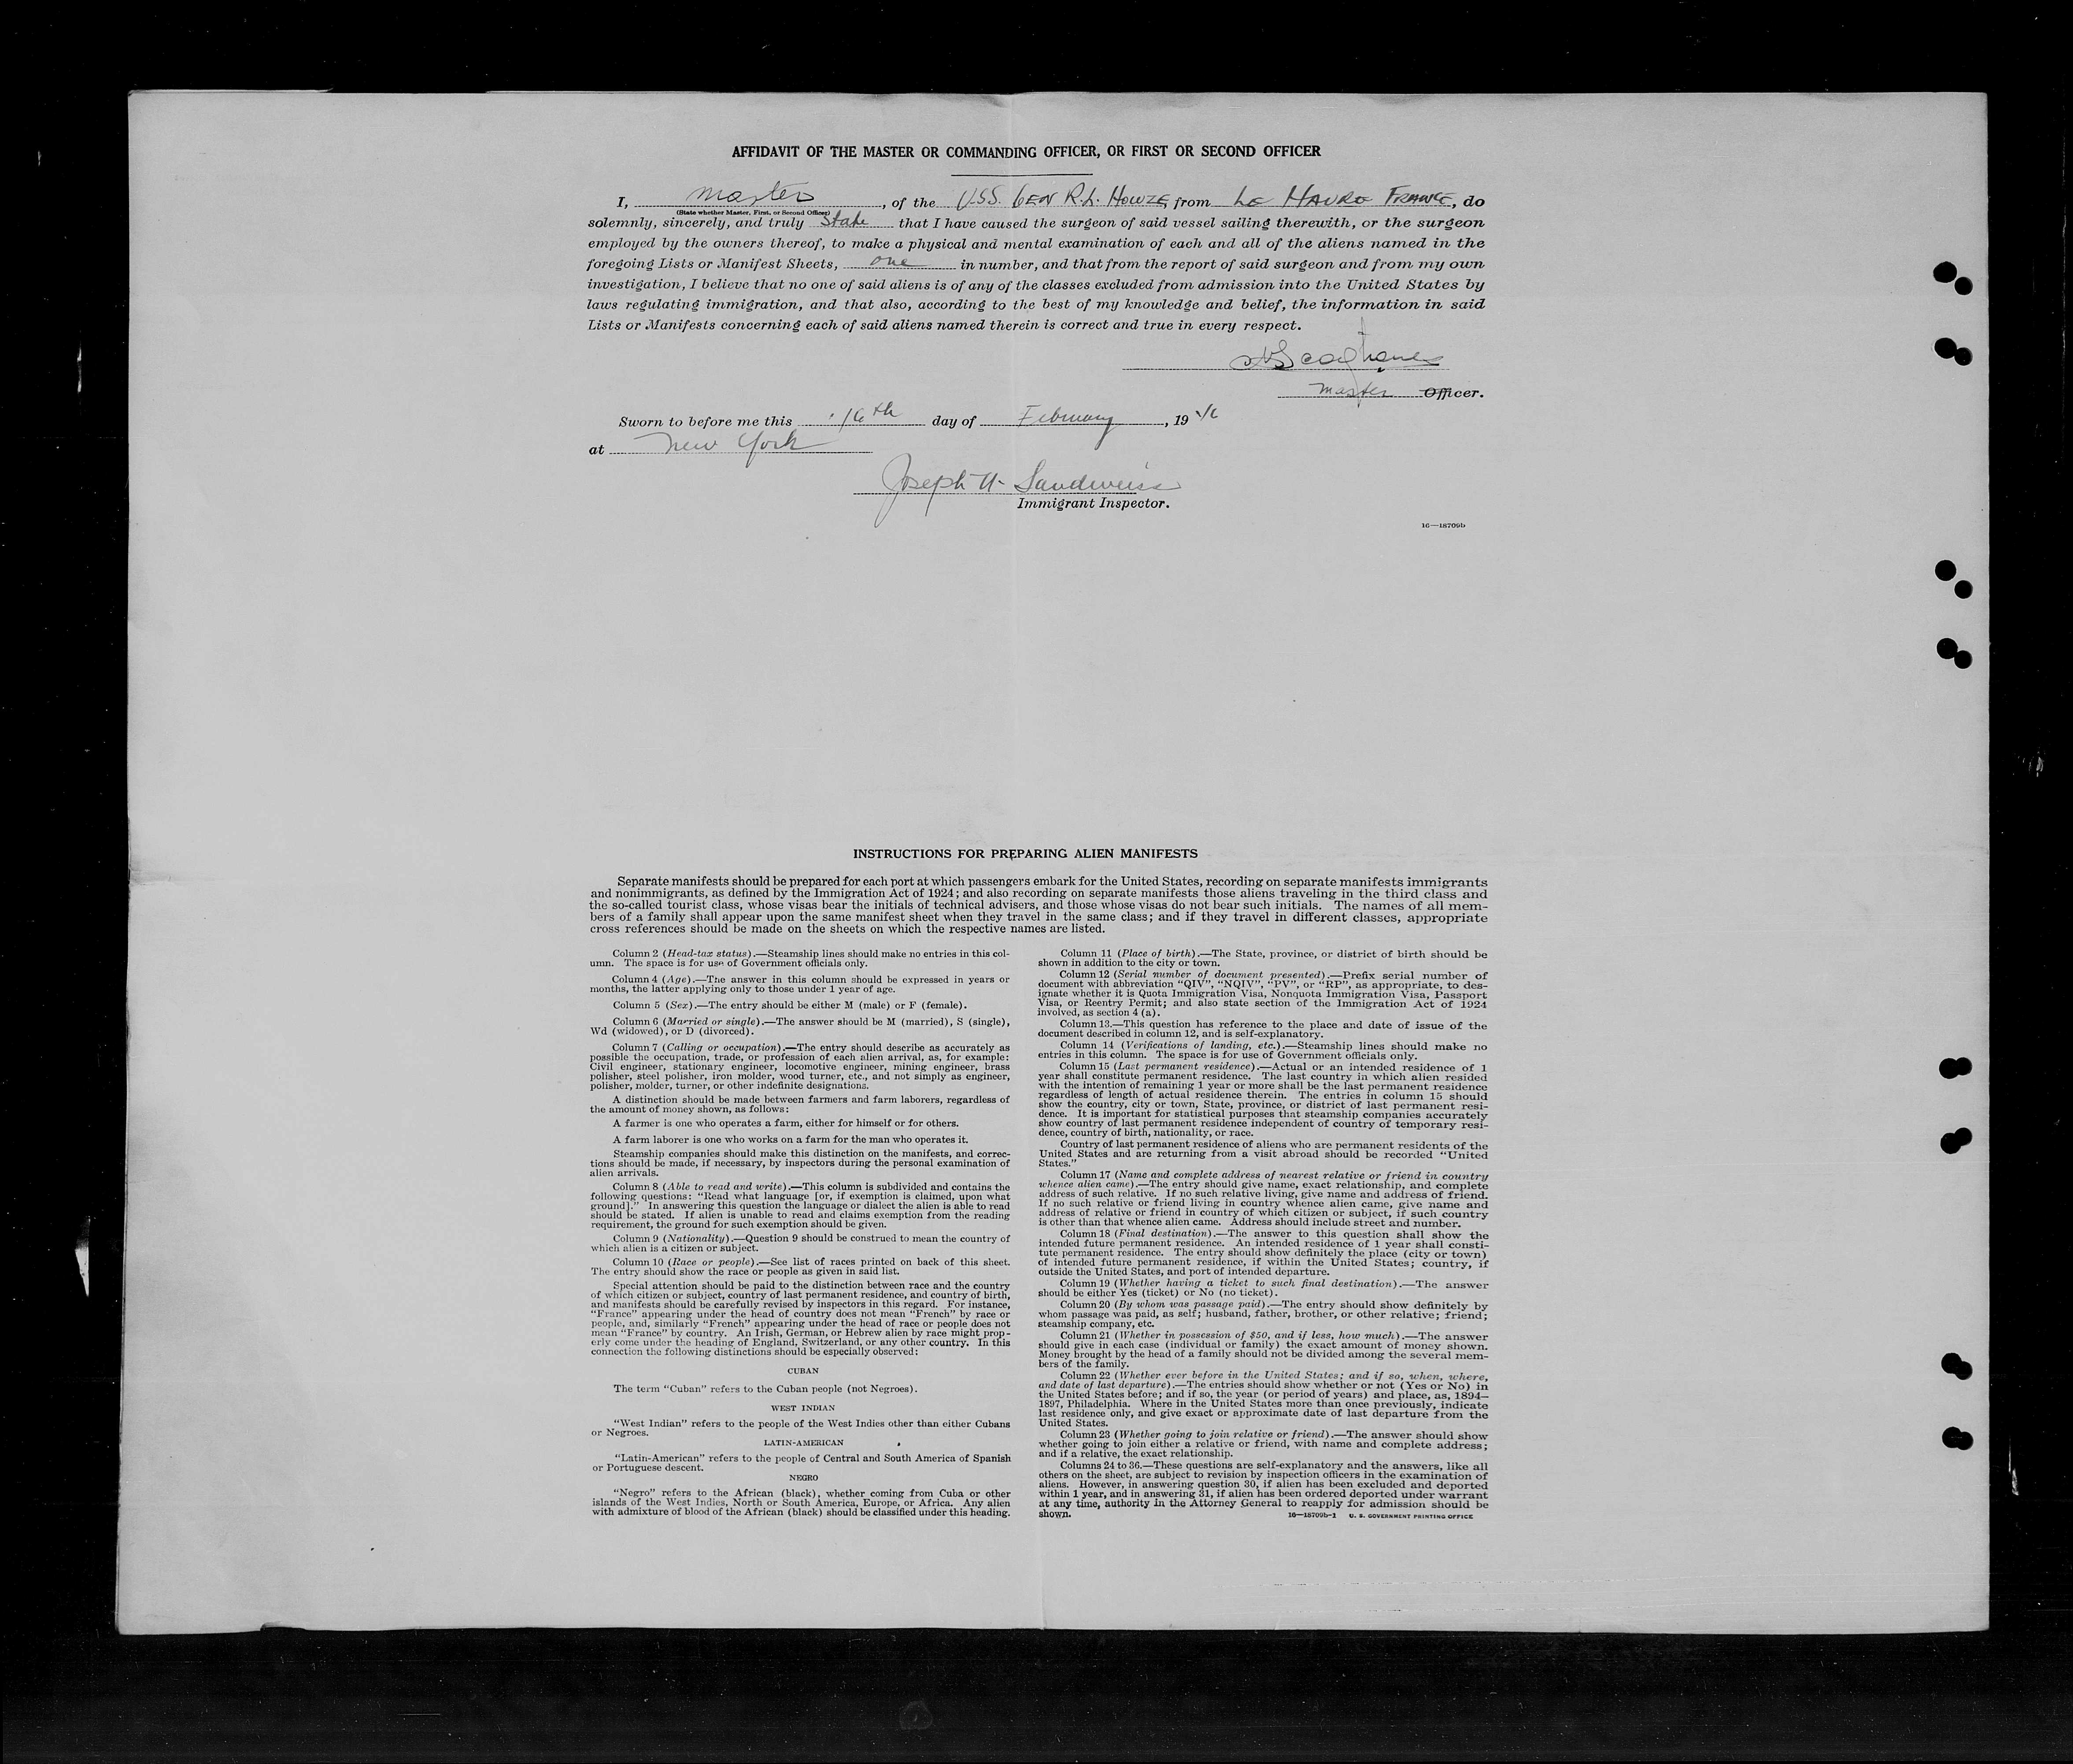 AFFIDAVIT OF THE MASTER OR COMMANDING OFFICER, OR FIRST OR SECOND OFFICER
I, master, of the U.S.S. GEN R.L. HOWZE from LE HAVRE FRANCE, do
(State whether Master, First, or Second Officer)
solemnly, sincerely, and truly state that I have caused the surgeon of said vessel sailing therewith, or the surgeon
employed by the owners thereof, to make a physical and mental examination of each and all of the aliens named in the
foregoing Lists or Manifest Sheets, one in number, and that from the report of said surgeon and from my own
investigation, I believe that no one of said aliens is of any of the classes excluded from admission into the United States by
laws regulating immigration, and that also, according to the best of my knowledge and belief, the information in said
Lists or Manifests concerning each of said aliens named therein is correct and true in every respect.
master Officer.
Sworn to before me this 16th day of February, 19
at New York
Joseph H. Sandweiss
Immigrant Inspector.
16—18709b
INSTRUCTIONS FOR PREPARING ALIEN MANIFESTS
Separate manifests should be prepared for each port at which passengers embark for the United States, recording on separate manifests immigrants
and nonimmigrants, as defined by the Immigration Act of 1924; and also recording on separate manifests those aliens traveling in the third class and
the so-called tourist class, whose visas bear the initials of technical advisers, and those whose visas do not bear such initials. The names of all mem-
bers of a family shall appear upon the same manifest sheet when they travel in the same class; and if they travel in different classes, appropriate
cross references should be made on the sheets on which the respective names are listed.
Column 2 (Head-tax status).—Steamship lines should make no entries in this col-
umn. The space is for use of Government officials only.
Column 4 (Age).—The answer in this column should be expressed in years or
months, the latter applying only to those under 1 year of age.
Column 5 (Sex).—The entry should be either M (male) or F (female).
Column 6 (Married or single).—The answer should be M (married), S (single),
Wd (widowed), or D (divorced).
Column 7 (Calling or occupation).—The entry should describe as accurately as
possible the occupation, trade, or profession of each alien arrival, as, for example:
Civil engineer, stationary engineer, locomotive engineer, mining engineer, brass
polisher, steel polisher, iron molder, wood turner, etc., and not simply as engineer,
polisher, molder, turner, or other indefinite designations.
A distinction should be made between farmers and farm laborers, regardless of
the amount of money shown, as follows:
A farmer is one who operates a farm, either for himself or for others.
A farm laborer is one who works on a farm for the man who operates it.
Steamship companies should make this distinction on the manifests, and correc-
tions should be made, if necessary, by inspectors during the personal examination of
alien arrivals.
Column 8 (Able to read and write).—This column is subdivided and contains the
following questions: "Read what language [or, if exemption is claimed, upon what
ground]." In answering this question the language or dialect the alien is able to read
should be stated. If alien is unable to read and claims exemption from the reading
requirement, the ground for such exemption should be given.
Column 9 (Nationality).—Question 9 should be construed to mean the country of
which alien is a citizen or subject.
Column 10 (Race or people).—See list of races printed on back of this sheet.
The entry should show the race or people as given in said list.
Special attention should be paid to the distinction between race and the country
of which citizen or subject, country of last permanent residence, and country of birth,
and manifests should be carefully revised by inspectors in this regard. For instance,
"France" appearing under the head of country does not mean "French" by race or
people, and, similarly "French" appearing under the head of race or people does not
mean "France" by country. An Irish, German, or Hebrew alien by race might prop-
erly come under the heading of England, Switzerland, or any other country. In this
connection the following distinctions should be especially observed:
CUBAN
The term "Cuban" refers to the Cuban people (not Negroes).
WEST INDIAN
"West Indian" refers to the people of the West Indies other than either Cubans
or Negroes.
LATIN-AMERICAN
"Latin-American" refers to the people of Central and South America of Spanish
or Portuguese descent.
NEGRO
"Negro" refers to the African (black), whether coming from Cuba or other
islands of the West Indies, North or South America, Europe, or Africa. Any alien
with admixture of blood of the African (black) should be classified under this heading.
Column 11 (Place of birth).—The State, province, or district of birth should be
shown in addition to the city or town.
Column 12 (Serial number of document presented).—Prefix serial number of
document with abbreviation "QIV", "NQIV", "PV", or "RP", as appropriate, to des-
ignate whether it is Quota Immigration Visa, Nonquota Immigration Visa, Passport
Visa, or Reentry Permit; and also state section of the Immigration Act of 1924
involved, as section 4 (a).
Column 13.—This question has reference to the place and date of issue of the
document described in column 12, and is self-explanatory.
Column 14 (Verifications of landing, etc.).—Steamship lines should make no
entries in this column. The space is for use of Government officials only.
Column 15 (Last permanent residence).—Actual or an intended residence of 1
year shall constitute permanent residence. The last country in which alien resided
with the intention of remaining 1 year or more shall be the last permanent residence
regardless of length of actual residence therein. The entries in column 15 should
show the country, city or town, State, province, or district of last permanent resi-
dence. It is important for statistical purposes that steamship companies accurately
show country of last permanent residence independent of country of temporary resi-
dence, country of birth, nationality, or race.
Country of last permanent residence of aliens who are permanent residents of the
United States and are returning from a visit abroad should be recorded "United
States."
Column 17 (Name and complete address of nearest relative or friend in country
whence alien came).—The entry should give name, exact relationship, and complete
address of such relative. If no such relative living, give name and address of friend.
If no such relative or friend living in country whence alien came, give name and
address of relative or friend in country of which citizen or subject, if such country
is other than that whence alien came. Address should include street and number.
Column 18 (Final destination).—The answer to this question shall show the
intended future permanent residence. An intended residence of 1 year shall consti-
tute permanent residence. The entry should show definitely the place (city or town)
of intended future permanent residence, if within the United States; country, if
outside the United States, and port of intended departure.
Column 19 (Whether having a ticket to such final destination).—The answer
should be either Yes (ticket) or No (no ticket).
Column 20 (By whom was passage paid).—The entry should show definitely by
whom passage was paid, as self; husband, father, brother, or other relative; friend;
steamship company, etc.
Column 21 (Whether in possession of $50, and if less, how much).—The answer
should give in each case (individual or family) the exact amount of money shown.
Money brought by the head of a family should not be divided among the several mem-
bers of the family.
Column 22 (Whether ever before in the United States; and if so, when, where,
and date of last departure).—The entries should show whether or not (Yes or No) in
the United States before; and if so, the year (or period of years) and place, as, 1894–
1897, Philadelphia. Where in the United States more than once previously, indicate
last residence only, and give exact or approximate date of last departure from the
United States.
Column 23 (Whether going to join relative or friend).—The answer should show
whether going to join either a relative or friend, with name and complete address;
and if a relative, the exact relationship.
Columns 24 to 36.—These questions are self-explanatory and the answers, like all
others on the sheet, are subject to revision by inspection officers in the examination of
aliens. However, in answering question 30, if alien has been excluded and deported
within 1 year, and in answering 31, if alien has been ordered deported under warrant
at any time, authority in the Attorney General to reapply for admission should be
shown.
16—18709b-1 U. S. GOVERNMENT PRINTING OFFICE